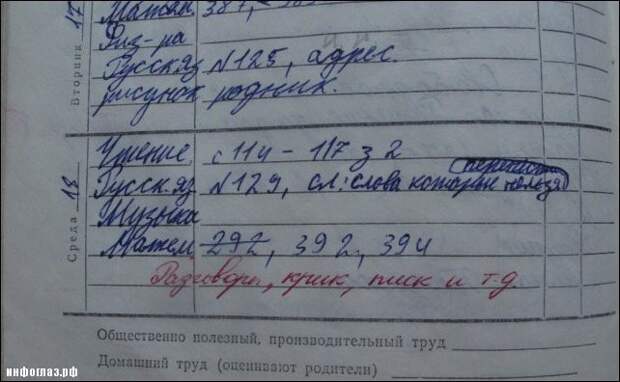 Вторник 17
Матем 387,
Физ-ра
Русск.яз N125, адрес.
рисунок родник.
Среда 18
Чтение. с 114 - 117 з 2
Русск.яз N129, сл: слова которые нельзя перенести
Музыка
Матем 292, 392, 394
Разговоры, крик, писк и т.д
Общественно полезный, производительный труд
Домашний труд (оценивают родители)
инфоглаз.рф